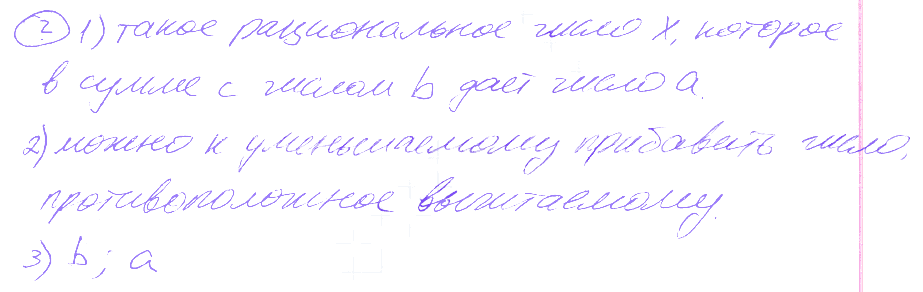 2 1) такое рациональное число х, которое
в сумме с числом b даёт число a.
2) можно к уменьшаемому прибавить число,
противоположное вычитаемому.
3) b; a